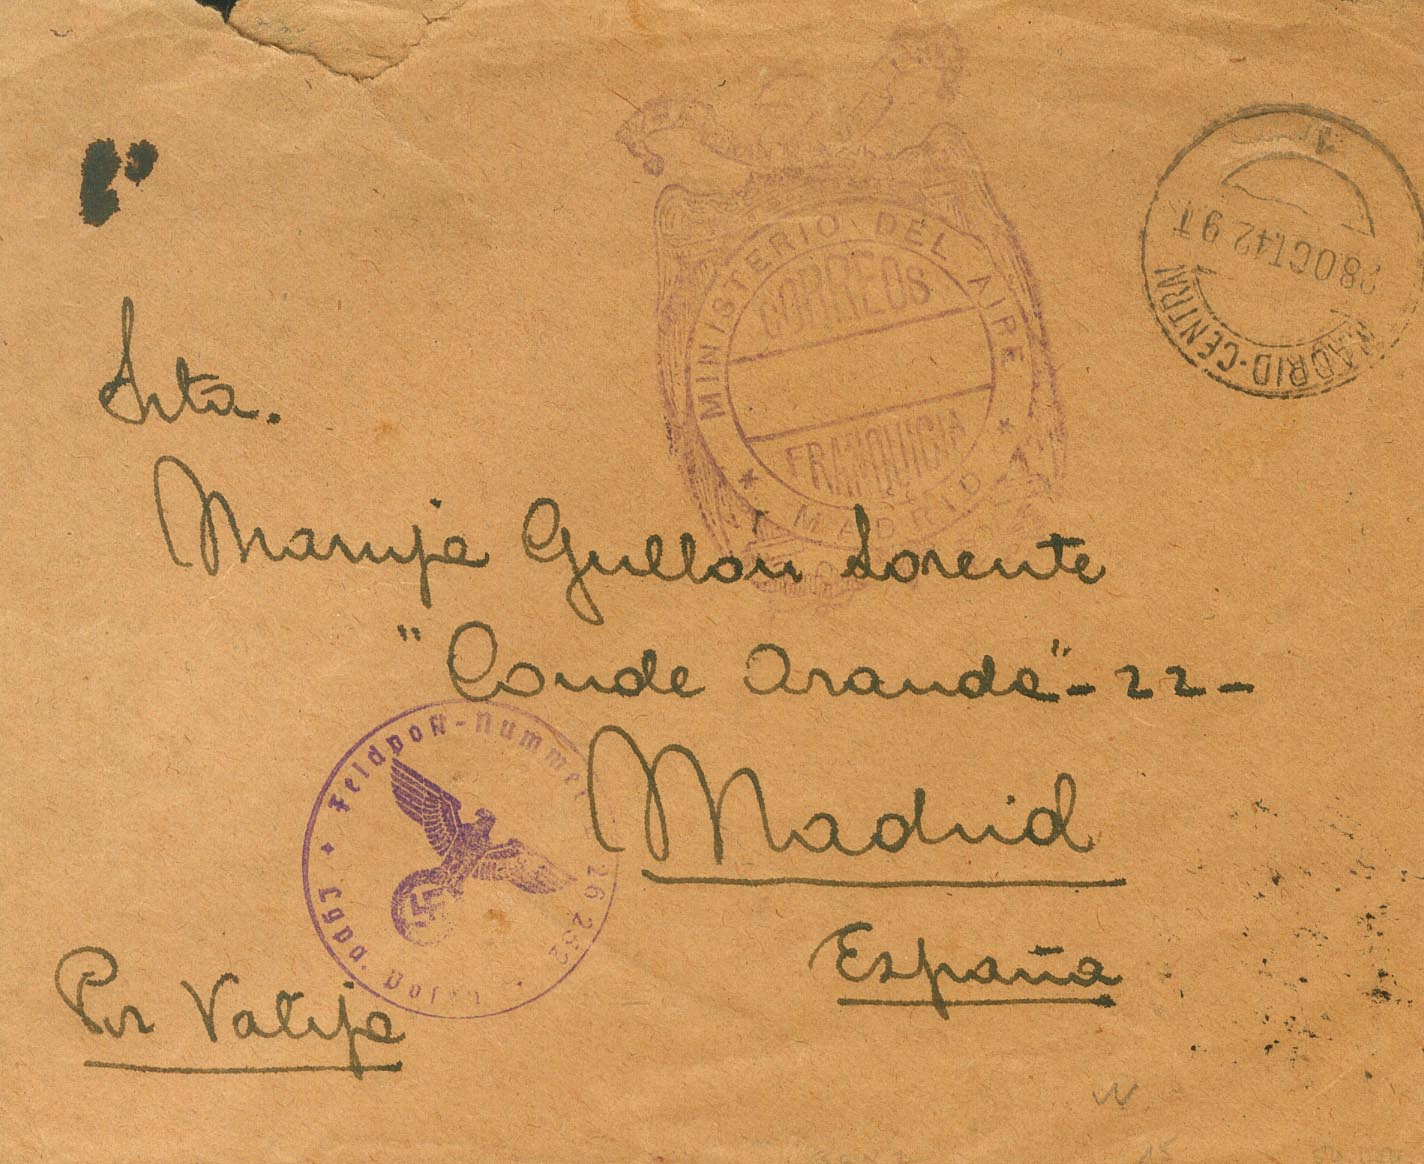 MINISTERIO DEL AIRE
CORREOS
FRANQUICIA
* MADRID *
MADRID-CENTRAL
28 OCT 42 9 T.
1
Srta.
Maruja Gullón Lorente
"Conde Aranda" - 22 -
Madrid
España
Feldpost-Nummer 26262
Por Valija
N
15